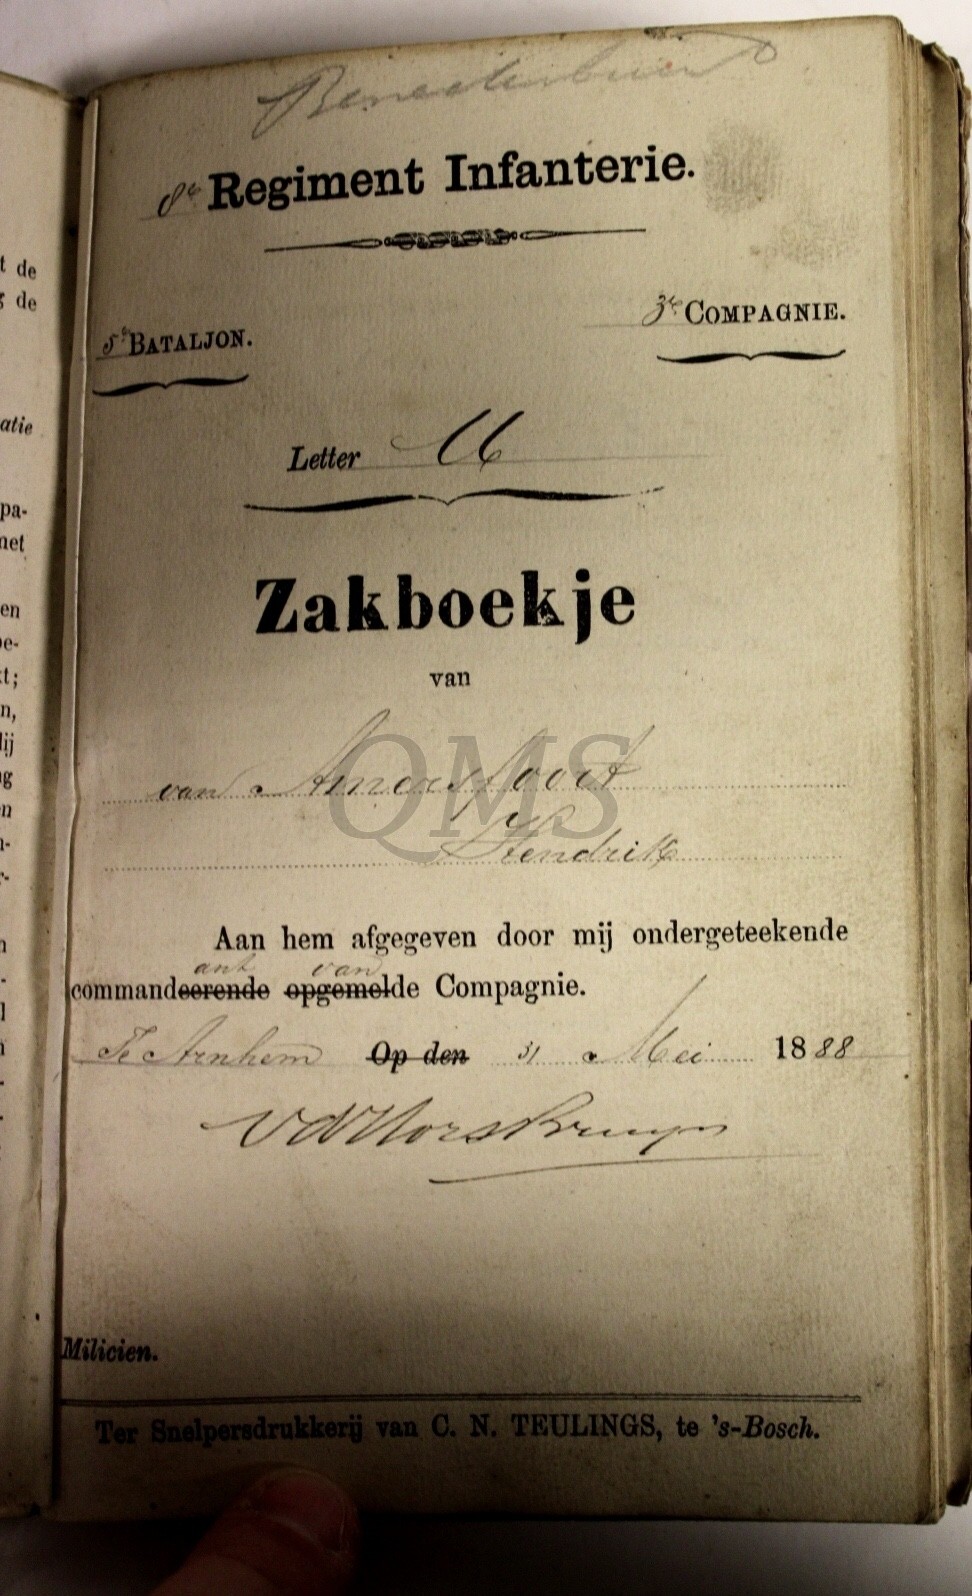 8e Regiment Infanterie.
5e BATALJON.
3e COMPAGNIE.
Letter
Zakboekje
van
van Amersfoort
QMS
Hendrik
Aan hem afgegeven door mij ondergeteekende
ant van
commandeerende opgemelde Compagnie.
Te Arnhem Op den 31 Mei 1888
Milicien.
Ter Snelpersdrukkerij van C. N. TEULINGS, te 's-Bosch.
t de
de
atie
pa-
net
en
oe-
t;
n,
lij
ng
en